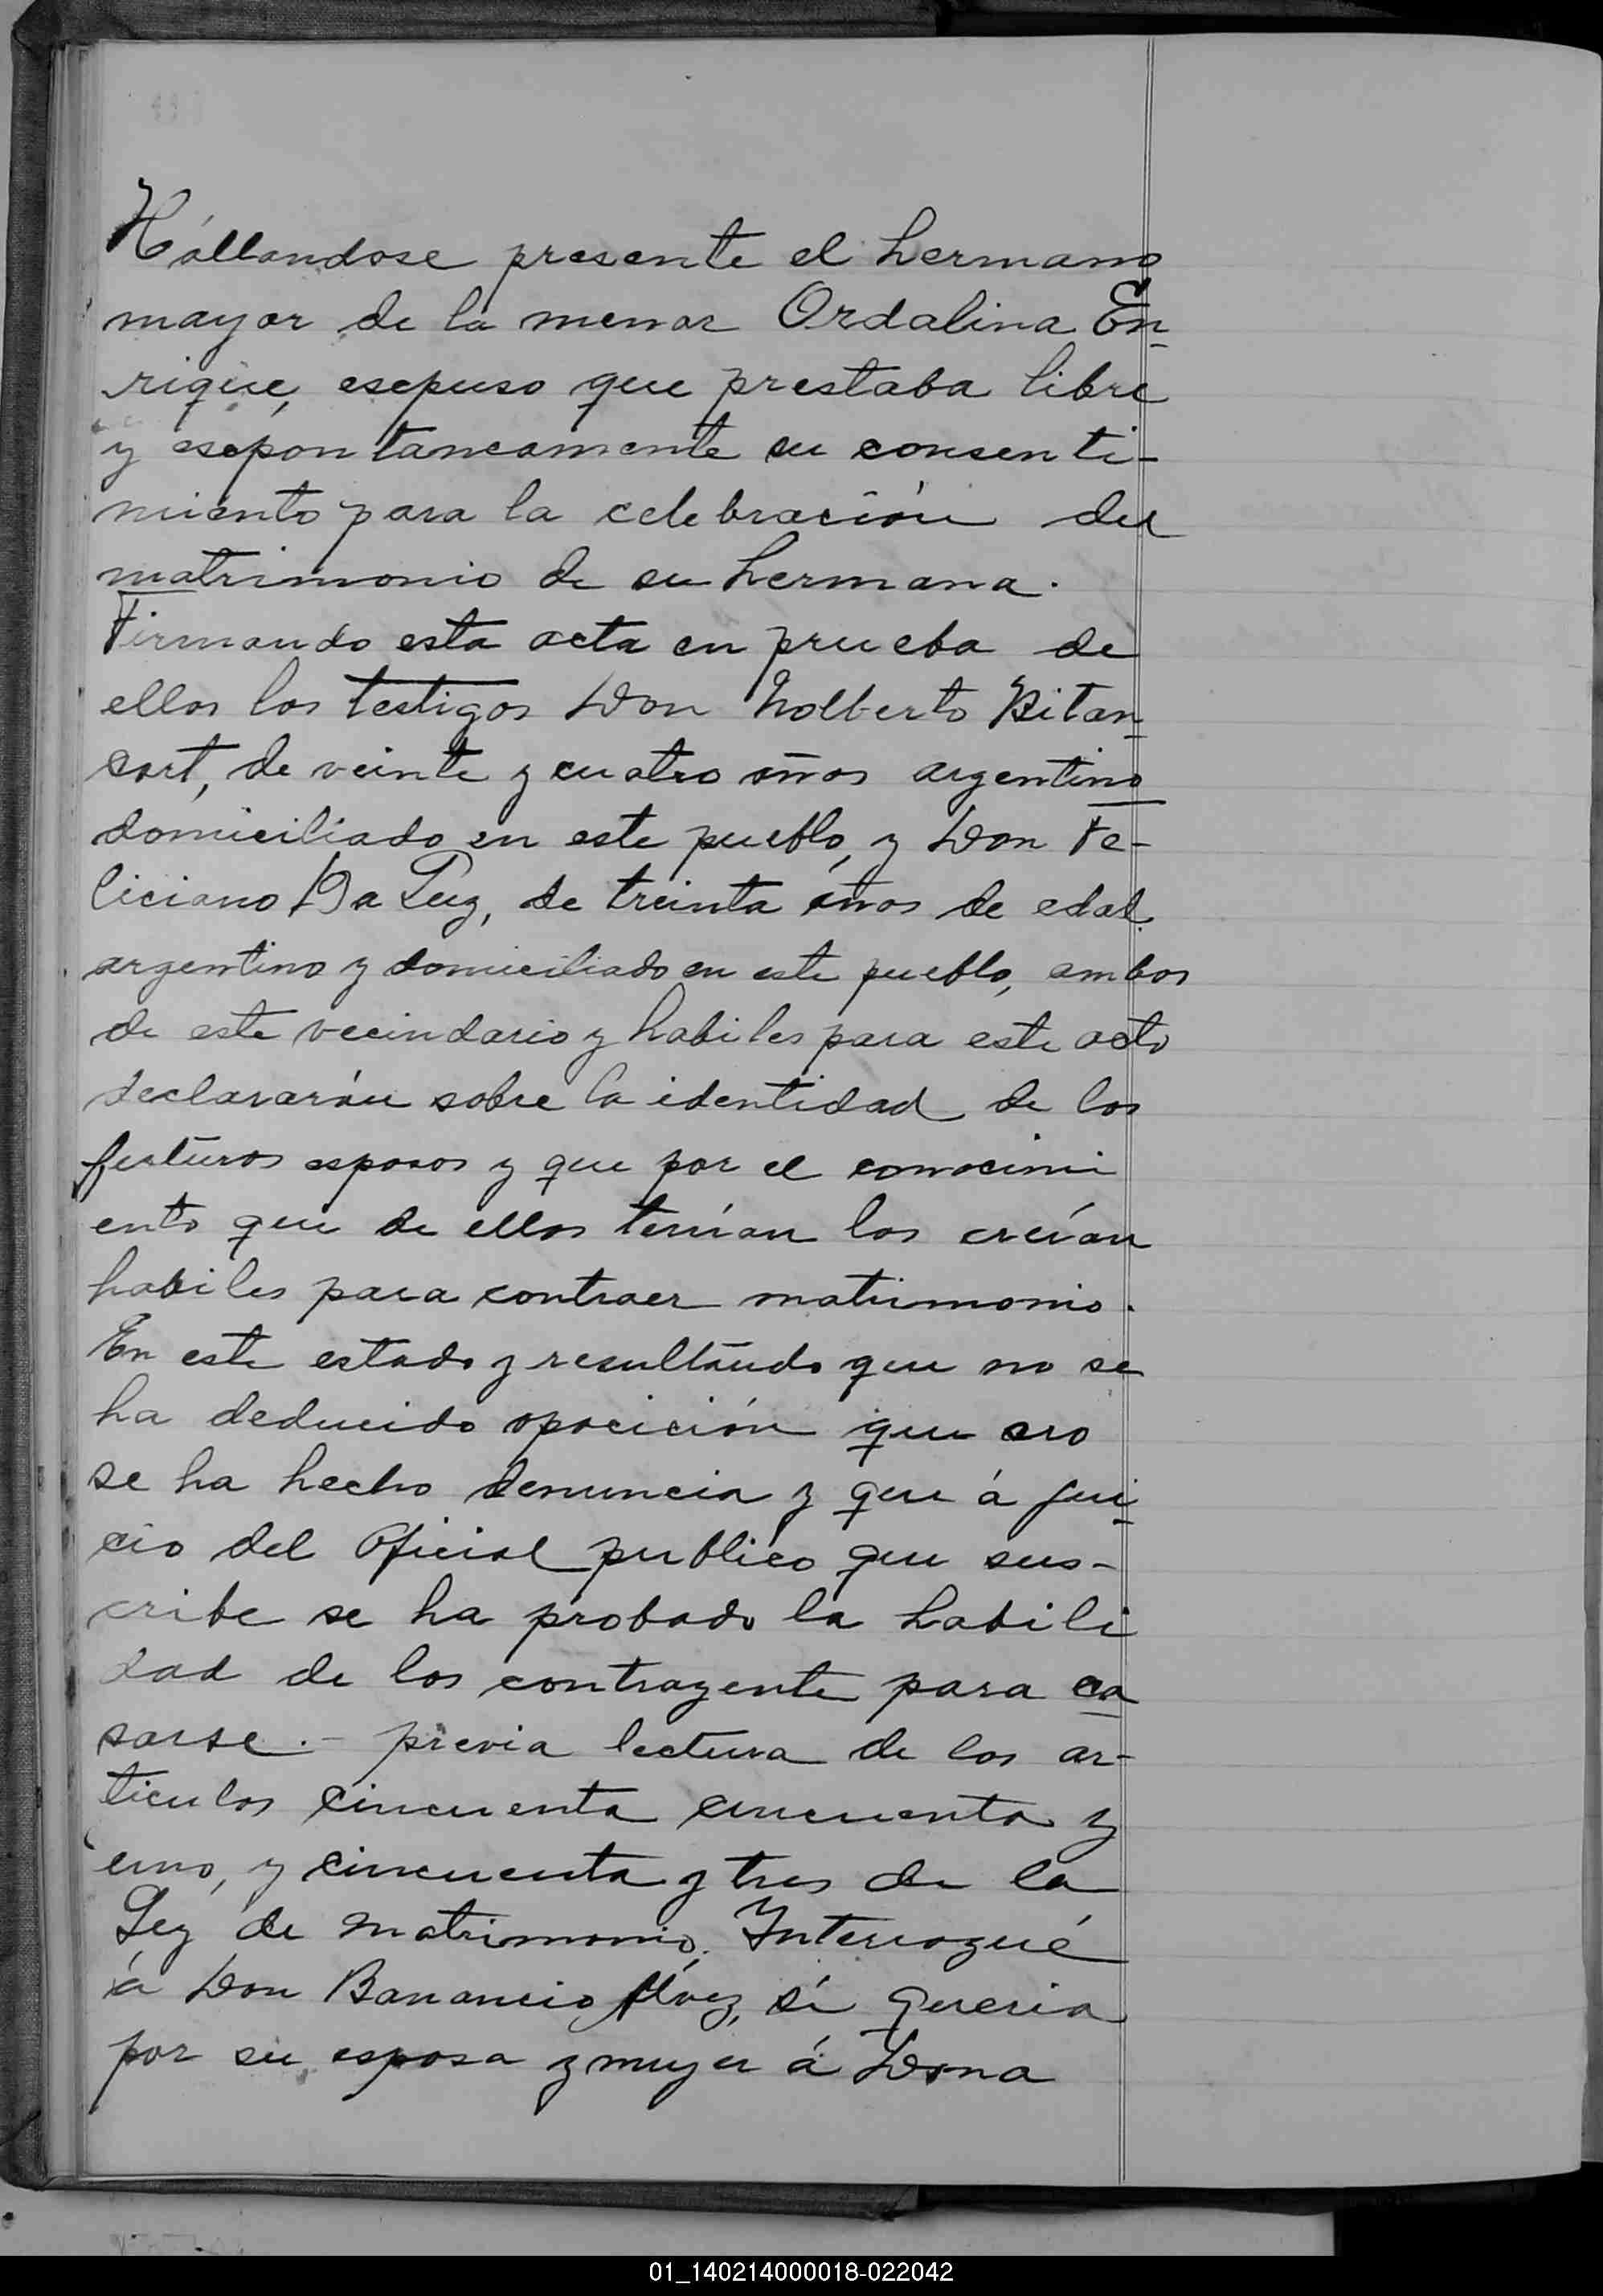 Hállandose presente el hermano
mayor de la menor Ordalina En-
rique, esepuso que prestaba libre
y esepontaneamente su consenti-
miento para la celebración del
matrimonio de su hermana.
Firmando esta acta en prueba de
ellos los testigos Don Nolberto Bitan-
cort, de veinte y cuatro años argentino
domiciliado en este pueblo, y Don Fe-
liciano Da Luz, de treinta años de edad
argentino y domiciliado en este pueblo, ambos
de este vecindario y habiles para este acto
declararón sobre la identidad de los
futuros esposos y que por el conocimi
ento que de ellos tenían los creían
habiles para contraer matrimonio.
En este estado y resultando que no se
ha deducido oposición que no
se ha hecho denuncia y que á jui-
cio del Oficial publico que sus-
cribe se ha probado la habili
dad de los contrayente para ca
sarse.- previa lectura de los ar-
ticulos cincuenta cincuenta y
uno, y cincuenta y tres de la
Ley de matrimonio. Interrogué
á Don Banancio si queria
por su esposa y mujer á Dona
01_140214000018-022042